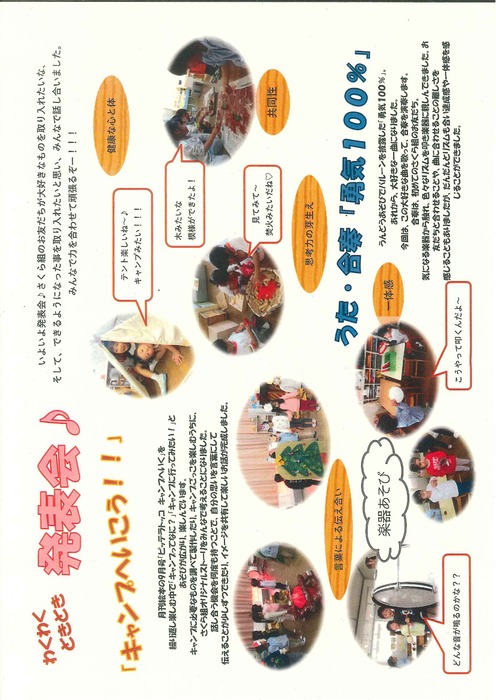 わくわく
どきどき
発表会♪
いよいよ発表会♪さくら組のお友だちが大好きなものを取り入れたいな、
そして、できるようになった事を取り入れたいと思い、みんなで話し合いました。
みんなで力を合わせて頑張るぞー！！！
「キャンプへいこう！！」
月刊絵本の9月号「ピッデラトッコ キャンプへいく」を
繰り返し楽しむ中で「キャンプってなに？」「キャンプに行ってみたい！」と
あそびが広がり、楽しんでいます。
キャンプに必要なものを調べて製作したり、キャンプごっこを楽しむうちに、
さくら組オリジナルストーリーをみんなで考えることになりました。
話し合う機会を何度も持つことで、自分の思いを言葉にして
伝えることが少しずつできたり、イメージを共有して楽しいお話が完成しました。
テント楽しいね〜♪
キャンプみたい！！！
健康な心と体
木みたいな
模様ができたよ！
共同性
見てみて〜
焚火みたいだね♡
思考力の芽生え
言葉による伝え合い
うた・合奏「勇気１００％」
うんどうあそびでバルーンを披露した「勇気100％」。
あれから、大好きな一曲になりました。
今回は、この大好きな曲を歌って、合奏を演奏します。
合奏は、初めてのさくら組のお友だち。
気になる楽器から触れ、色々なリズムを叩き楽器に親しんできました。お
友だちと合わせることや、曲に合わせることの難しさを
感じることもありましたが、だんだんとリズムも合い達成感や一体感を感
じることができました。
一体感
こうやって叩くんだよ〜
楽器あそび
どんな音が鳴るのかな？？